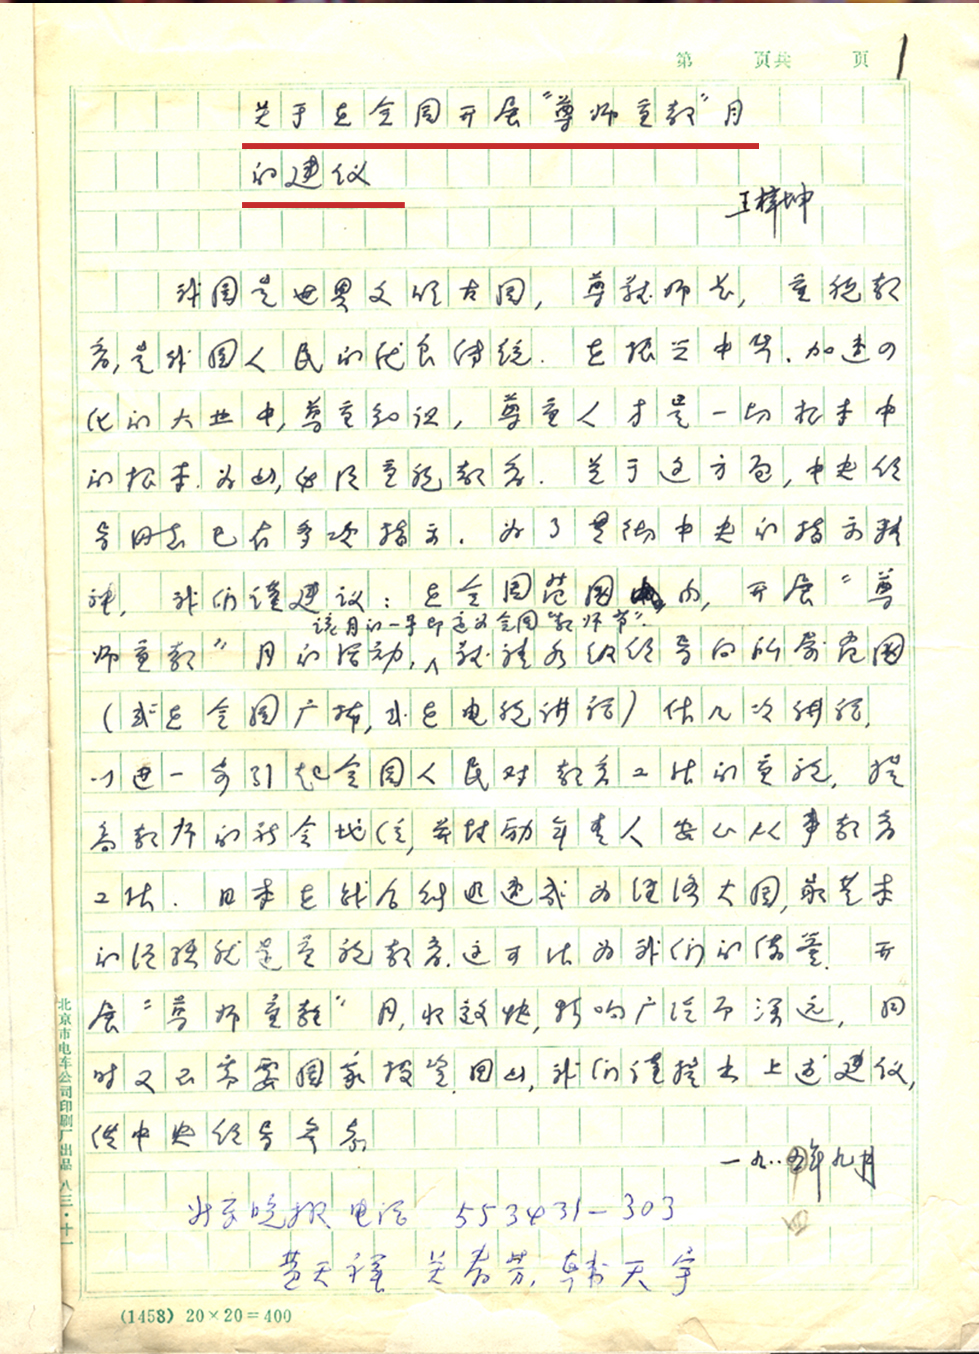 第 页共 页 1
关于在全国开展“尊师重教”月
的建议
王梓坤
我国是世界文明古国，尊敬师长，重视教
育，是我国人民的优良传统．在振兴中华．加速四
化的大业中，尊重知识，尊重人才是一切根本中
的根本．为此，必须重视教育．关于这方面，中央领
导同志已有多次指示．为了贯彻中央的指示精
神，我们谨建议：在全国范围内，开展“尊
该月的一号即定为全国“教师节”．
师重教”月的活动，敬请各级领导向所属范围
（或在全国广播，或在电视讲话）作几次讲话，
以进一步引起全国人民对教育工作的重视，提
高教师的社会地位，并鼓励年青人安心从事教育
工作．日本在战后能迅速成为经济大国，最基本
的经验就是重视教育．这可作为我们的借鉴．开
展“尊师重教”月，收效快，影响广泛而深远，同
时又不需要国家投资．因此，我们谨提出上述建议，
供中央领导参考
一九八四年九月
四
北京晚报电话 553431-303
黄天祥 关春芳．韩天宇
(1458) 20×20=400
北京市电车公司印刷厂出品 八三·十一